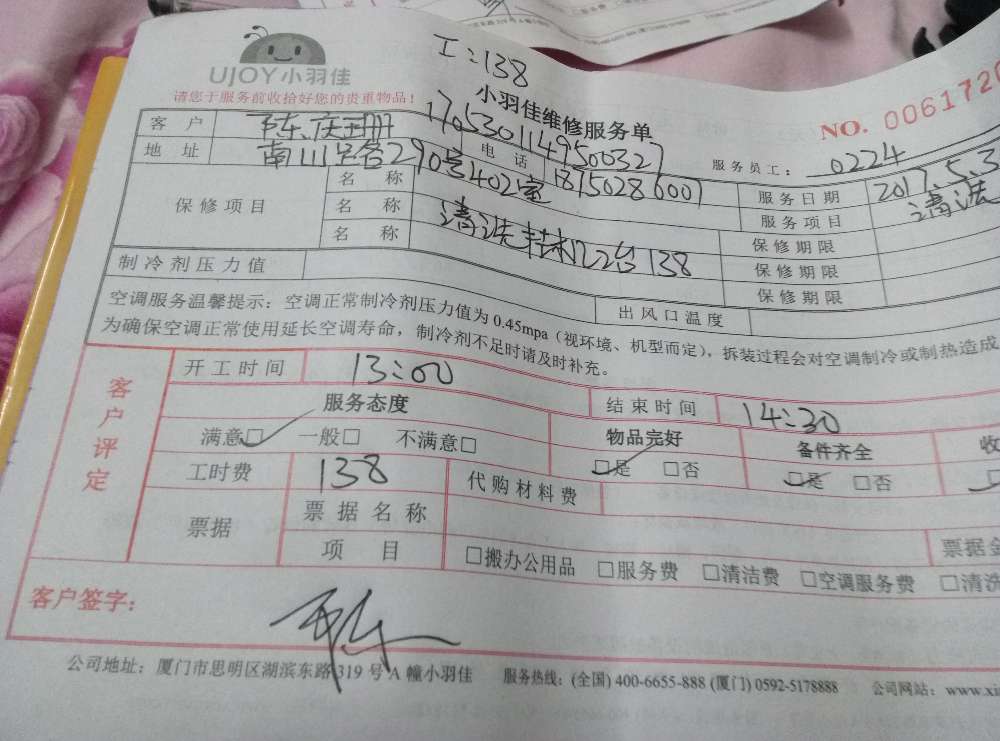 工:138
UJOY小羽佳
请您于服务前收拾好您的贵重物品!
小羽佳维修服务单
NO. 0061720
1705301149500327
服务员工: 0224
客户 陈庆
电话 18750286007
服务日期 2017.5.3
地址 南山路290号402室
服务项目 清洗
保修项目
名称
名称 清洗挂机2台138
名称
保修期限
保修期限
保修期限
制冷剂压力值
出风口温度
空调服务温馨提示:空调正常制冷剂压力值为0.45mpa(视环境、机型而定),拆装过程会对空调制冷或制热造成
为确保空调正常使用延长空调寿命,制冷剂不足时请及时补充。
客户评定
开工时间 13:00
结束时间 14:30
服务态度
物品完好
备件齐全
收
满意□ 一般□ 不满意□
□是 □否
□是 □否
工时费 138
代购材料费
票据
票据名称
票据金
项目 □搬办公用品 □服务费 □清洁费 □空调服务费 □清洗
客户签字:
公司地址:厦门市思明区湖滨东路319号A幢小羽佳 服务热线:(全国)400-6655-888(厦门)0592-5178888 公司网站:www.xi